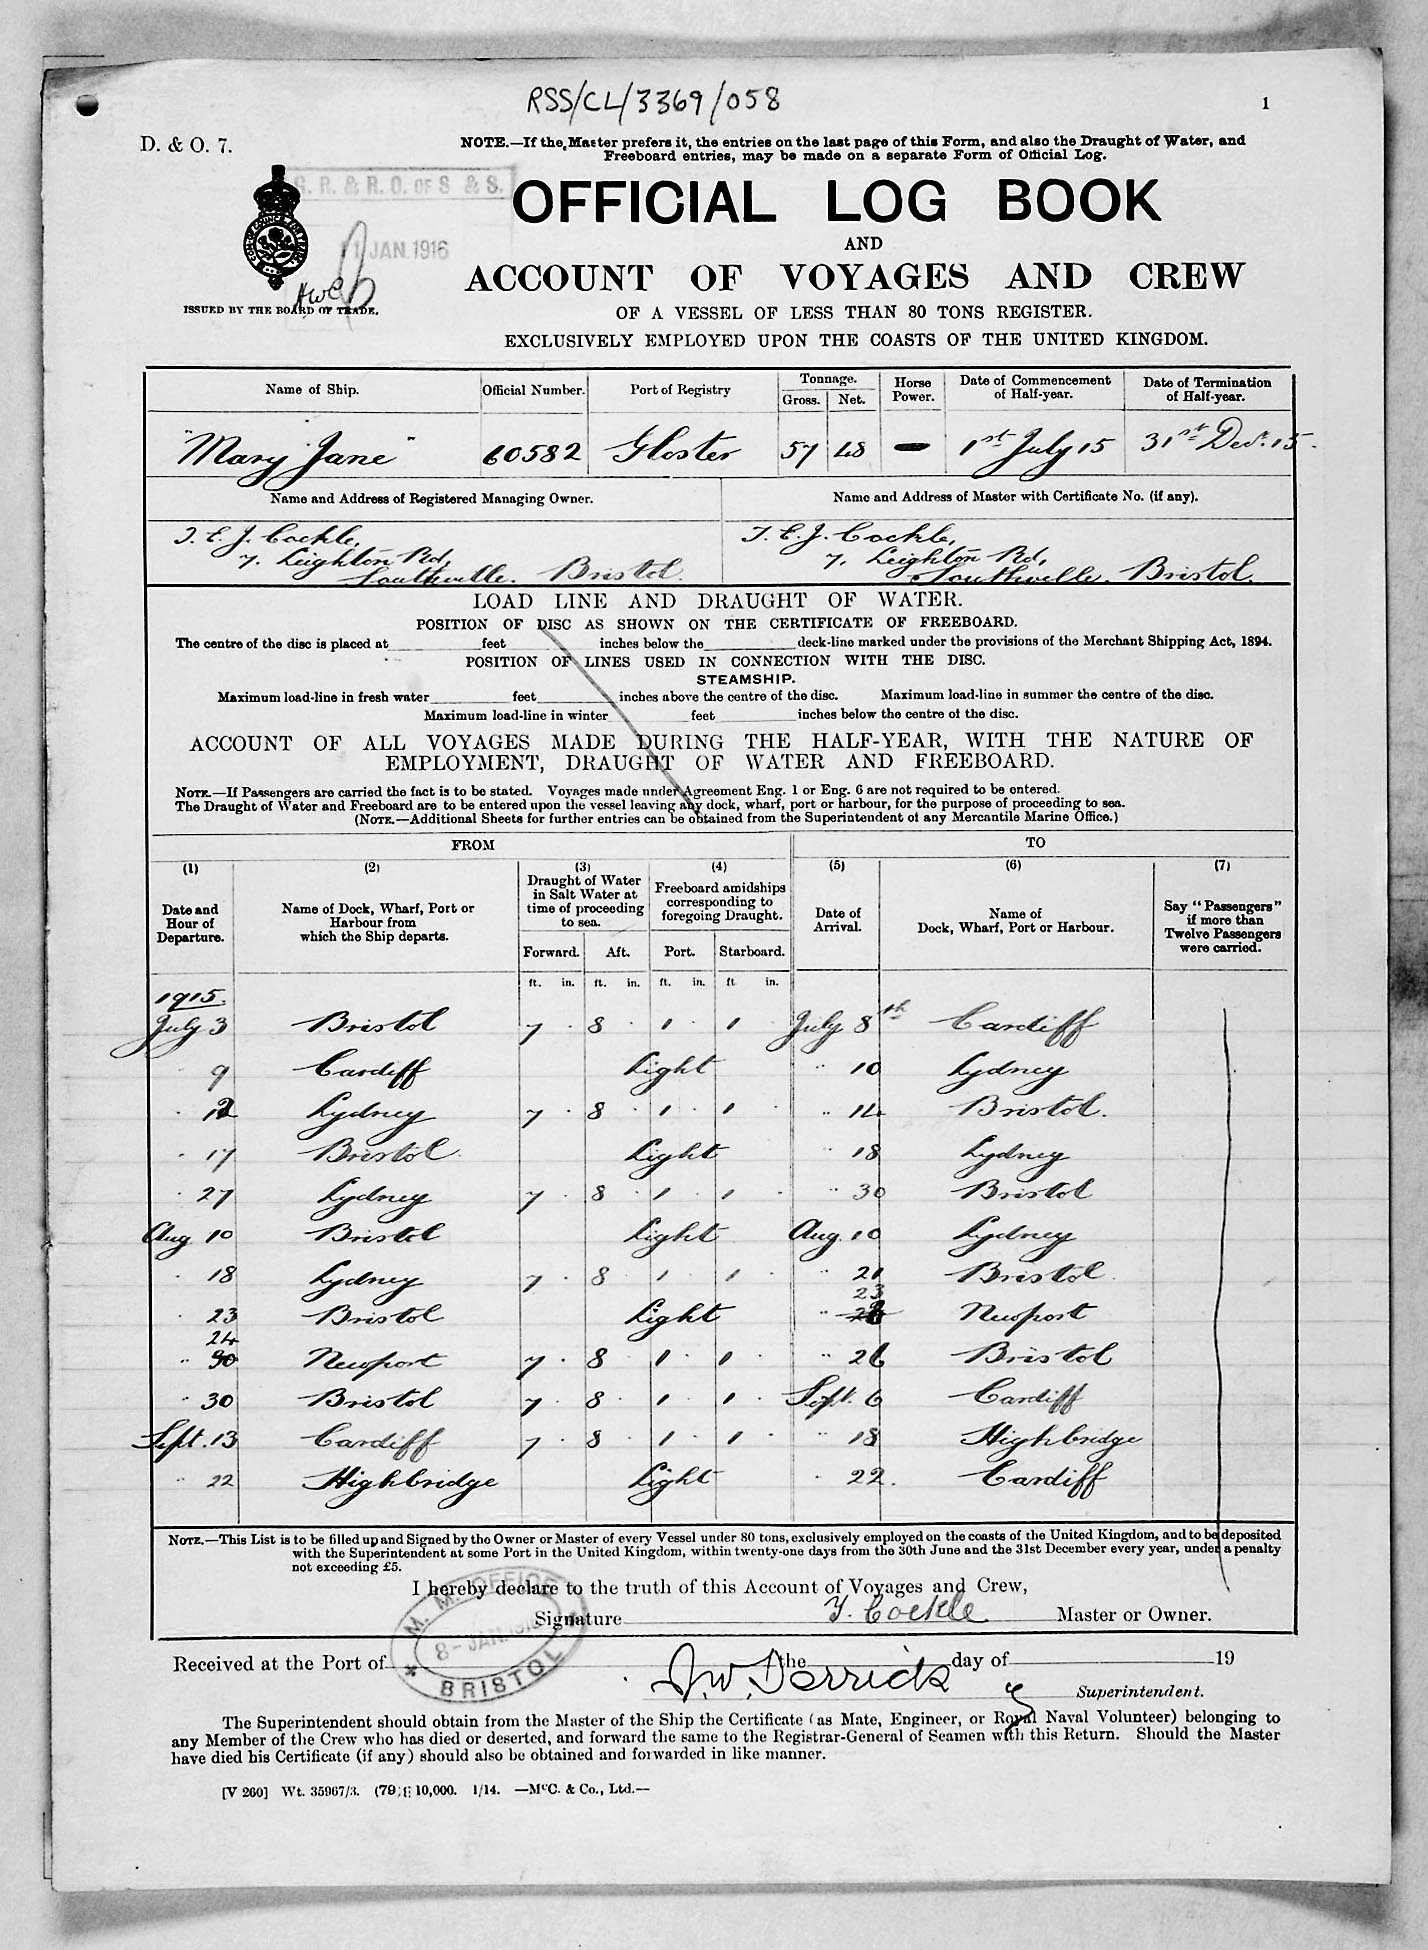 RSS/CL/3369/058
1
D. & O. 7.
NOTE.—If the Master prefers it, the entries on the last page of this Form, and also the Draught of Water, and
Freeboard entries, may be made on a separate Form of Official Log.
G. R. & R. O. OF S & S.
11 JAN. 1916
OFFICIAL LOG BOOK
AND
ACCOUNT OF VOYAGES AND CREW
ISSUED BY THE BOARD OF TRADE.
OF A VESSEL OF LESS THAN 80 TONS REGISTER.
EXCLUSIVELY EMPLOYED UPON THE COASTS OF THE UNITED KINGDOM.
Name of Ship. Official Number. Port of Registry Tonnage. Gross. Net. Horse Power. Date of Commencement of Half-year. Date of Termination of Half-year.
"Mary Jane" 60582 Gloster 57 48 — 1st July 15 31st Decr. 15.
Name and Address of Registered Managing Owner. Name and Address of Master with Certificate No. (if any).
T. E. J. Cockle, T. E. J. Cockle,
7. Leighton Rd, 7. Leighton Rd,
Southville. Bristol. Southville. Bristol.
LOAD LINE AND DRAUGHT OF WATER.
POSITION OF DISC AS SHOWN ON THE CERTIFICATE OF FREEBOARD.
The centre of the disc is placed at feet inches below the deck-line marked under the provisions of the Merchant Shipping Act, 1894.
POSITION OF LINES USED IN CONNECTION WITH THE DISC.
STEAMSHIP.
Maximum load-line in fresh water feet inches above the centre of the disc. Maximum load-line in summer the centre of the disc.
Maximum load-line in winter feet inches below the centre of the disc.
ACCOUNT OF ALL VOYAGES MADE DURING THE HALF-YEAR, WITH THE NATURE OF
EMPLOYMENT, DRAUGHT OF WATER AND FREEBOARD.
NOTE.—If Passengers are carried the fact is to be stated. Voyages made under Agreement Eng. 1 or Eng. 6 are not required to be entered.
The Draught of Water and Freeboard are to be entered upon the vessel leaving any dock, wharf, port or harbour, for the purpose of proceeding to sea.
(NOTE.—Additional Sheets for further entries can be obtained from the Superintendent of any Mercantile Marine Office.)
FROM TO
(1) (2) (3) (4) (5) (6) (7)
Date and Hour of Departure. Name of Dock, Wharf, Port or Harbour from which the Ship departs. Draught of Water in Salt Water at time of proceeding to sea. Freeboard amidships corresponding to foregoing Draught. Date of Arrival. Name of Dock, Wharf, Port or Harbour. Say "Passengers" if more than Twelve Passengers were carried.
Forward. Aft. Port. Starboard.
ft. in. ft. in. ft. in. ft in.
1915.
July 3 Bristol 7 . 8 . 1 . 1 . July 8th Cardiff
9 Cardiff Light " 10 Lydney
12 Lydney 7 . 8 . 1 . 1 . " 14 Bristol.
17 Bristol. Light " 18 Lydney
27 Lydney 7 . 8 . 1 . 1 . " 30 Bristol
Aug 10 Bristol Light Aug. 10 Lydney
18 Lydney 7 . 8 . 1 . 1 . " 21 Bristol
23
23 Bristol Light " Newport
24
" 30 Newport 7 . 8 . 1 . 1 . " 26 Bristol
" 30 Bristol 7 . 8 . 1 . 1 . Sept. 6 Cardiff
Sept. 13 Cardiff 7 . 8 . 1 . 1 . " 18 Highbridge
" 22 Highbridge Light " 22. Cardiff
NOTE.—This List is to be filled up and Signed by the Owner or Master of every Vessel under 80 tons, exclusively employed on the coasts of the United Kingdom, and to be deposited
with the Superintendent at some Port in the United Kingdom, within twenty-one days from the 30th June and the 31st December every year, under a penalty
not exceeding £5.
I hereby declare to the truth of this Account of Voyages and Crew,
Signature T. Cockle Master or Owner.
M. M. OFFICE
8 - JAN. 1916
BRISTOL
Received at the Port of the day of 19
J. W. Derrick Superintendent.
The Superintendent should obtain from the Master of the Ship the Certificate (as Mate, Engineer, or Royal Naval Volunteer) belonging to
any Member of the Crew who has died or deserted, and forward the same to the Registrar-General of Seamen with this Return. Should the Master
have died his Certificate (if any) should also be obtained and forwarded in like manner.
[V 260] Wt. 35967/3. 10,000. 1/14. —McC. & Co., Ltd.—